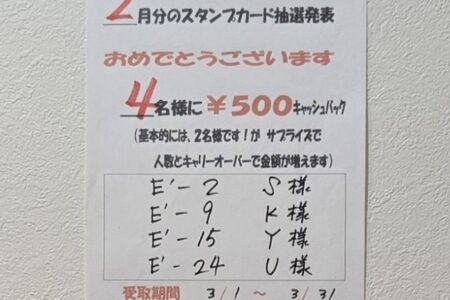 2月分のスタンプカード抽選発表
おめでとうございます
4名様に ￥500 キャッシュバック
(基本的には、2名様です!が サプライズで
人数とキャリーオーバーで金額が増えます)
E'-2 S様
E'-9 K様
E'-15 Y様
E'-24 U様
受取期間 3/1 ～ 3/31